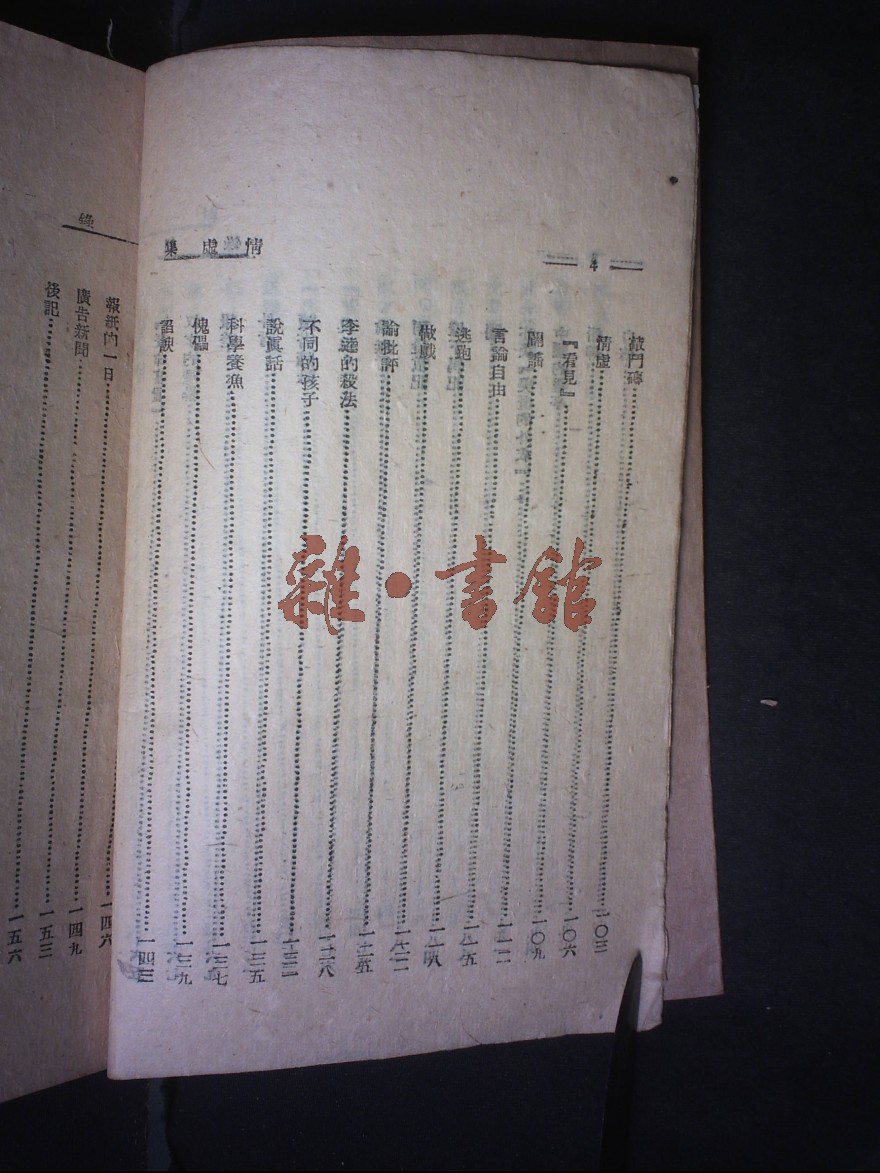 4
情虛集
敲門磚……一〇三
情虛……一〇六
『看見』……一〇九
闢謠……一一二
言論自由……一一五
逃跑……一一八
做戲……一二二
論批評……一二五
李逵的殺法……一二八
不同的孩子……一三二
說眞話……一三五
科學養魚……一三七
傀儡……一三九
……一四三
錄
……一四六
報紙的一日……一四九
廣告新聞……一五三
後記……一五六
雜·書館